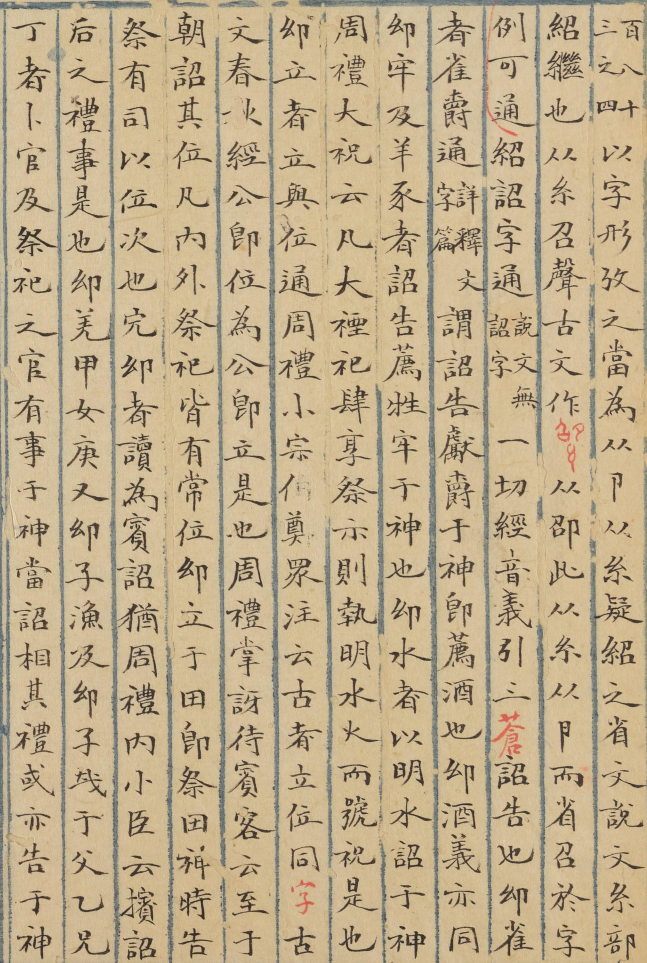 百八十
三之四
以字形攷之當為从卩从糸疑紹之省文說文糸部
紹繼也从糸召聲古文作从邵此从糸从卩而省召於字
例可通紹詔字通
說文無
詔字
一切經音義引三蒼詔告也雀
者雀爵通
詳釋文
字篇
謂詔告獻爵于神即薦酒也酒義亦同
牢及羊豕者詔告薦牲牢于神也水者以明水詔于神
周禮大祝云凡大禋祀肆享祭示則執明水火而號祝是也
立者立與位通周禮小宗伯奠眾注云古者立位同字古
文春秋經公即位為公即立是也周禮掌訝待賓客云至于
朝詔其位凡內外祭祀皆有常位立于田即祭田時告
祭有司以位次也者讀為賓詔猶周禮內小臣云擯詔
后之禮事是也羌甲女庚又子漁及子于父乙兄
丁者卜官及祭祀之官有事于神當詔相其禮或亦告于神